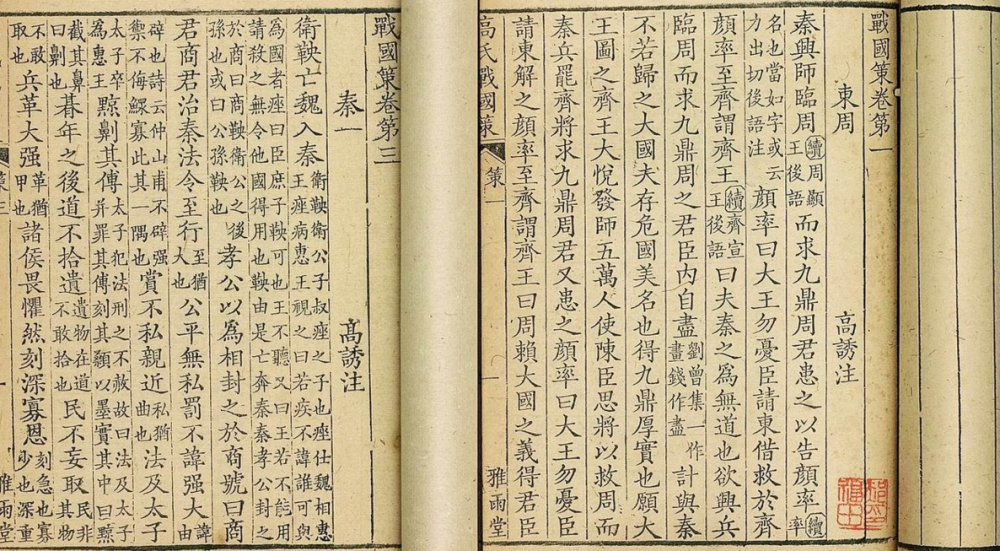 戰國策卷第一
東周 高誘注
秦興師臨周續周顯王後語而求九鼎周君患之以告顏率續率
名也當如字或云力出切後語注顏率曰大王勿憂臣請東借救於齊
顏率至齊謂齊王續齊宣王後語曰夫秦之爲無道也欲興兵
臨周而求九鼎周之君臣內自盡劉曾集一作畫錢作盡計與秦
不若歸之大國夫存危國美名也得九鼎厚實也願大
王圖之齊王大悅發師五萬人使陳臣思將以救周而
秦兵罷齊將求九鼎周君又患之顏率曰大王勿憂臣
請東解之顏率至齊謂齊王曰周賴大國之義得君臣
高氏戰國策 策一 一 雅雨堂
戰國策卷第三
秦一 高誘注
衛鞅亡魏入秦衛鞅衛公子叔痤之子也痤仕魏相惠王痤病惠王視之曰若疾不諱誰可與
為國者痤曰臣庶子鞅可也王不聽又曰王若不能用請殺之無令他國得用也鞅由是亡奔秦秦孝公封之
於商曰商鞅衛公之後孫也或曰公孫鞅也孝公以爲相封之於商號曰商
君商君治秦法令至行至猶大也公平無私罰不諱强大諱由
辟也詩云仲山甫不辟强禦不侮鰥寡此其一隅也賞不私親近私猶曲也法及太子
太子卒為惠王黥劓其傅太子犯法刑之不赦故曰法及太子并罪其傅刻其顙以墨實其中曰黥
截其鼻曰劓也朞年之後道不拾遺遺物在道不敢拾也民不妄取民非其物
不敢取也兵革大强革猶甲也諸侯畏懼然刻深寡恩刻急也寡少也深重
策三 一 雅雨堂